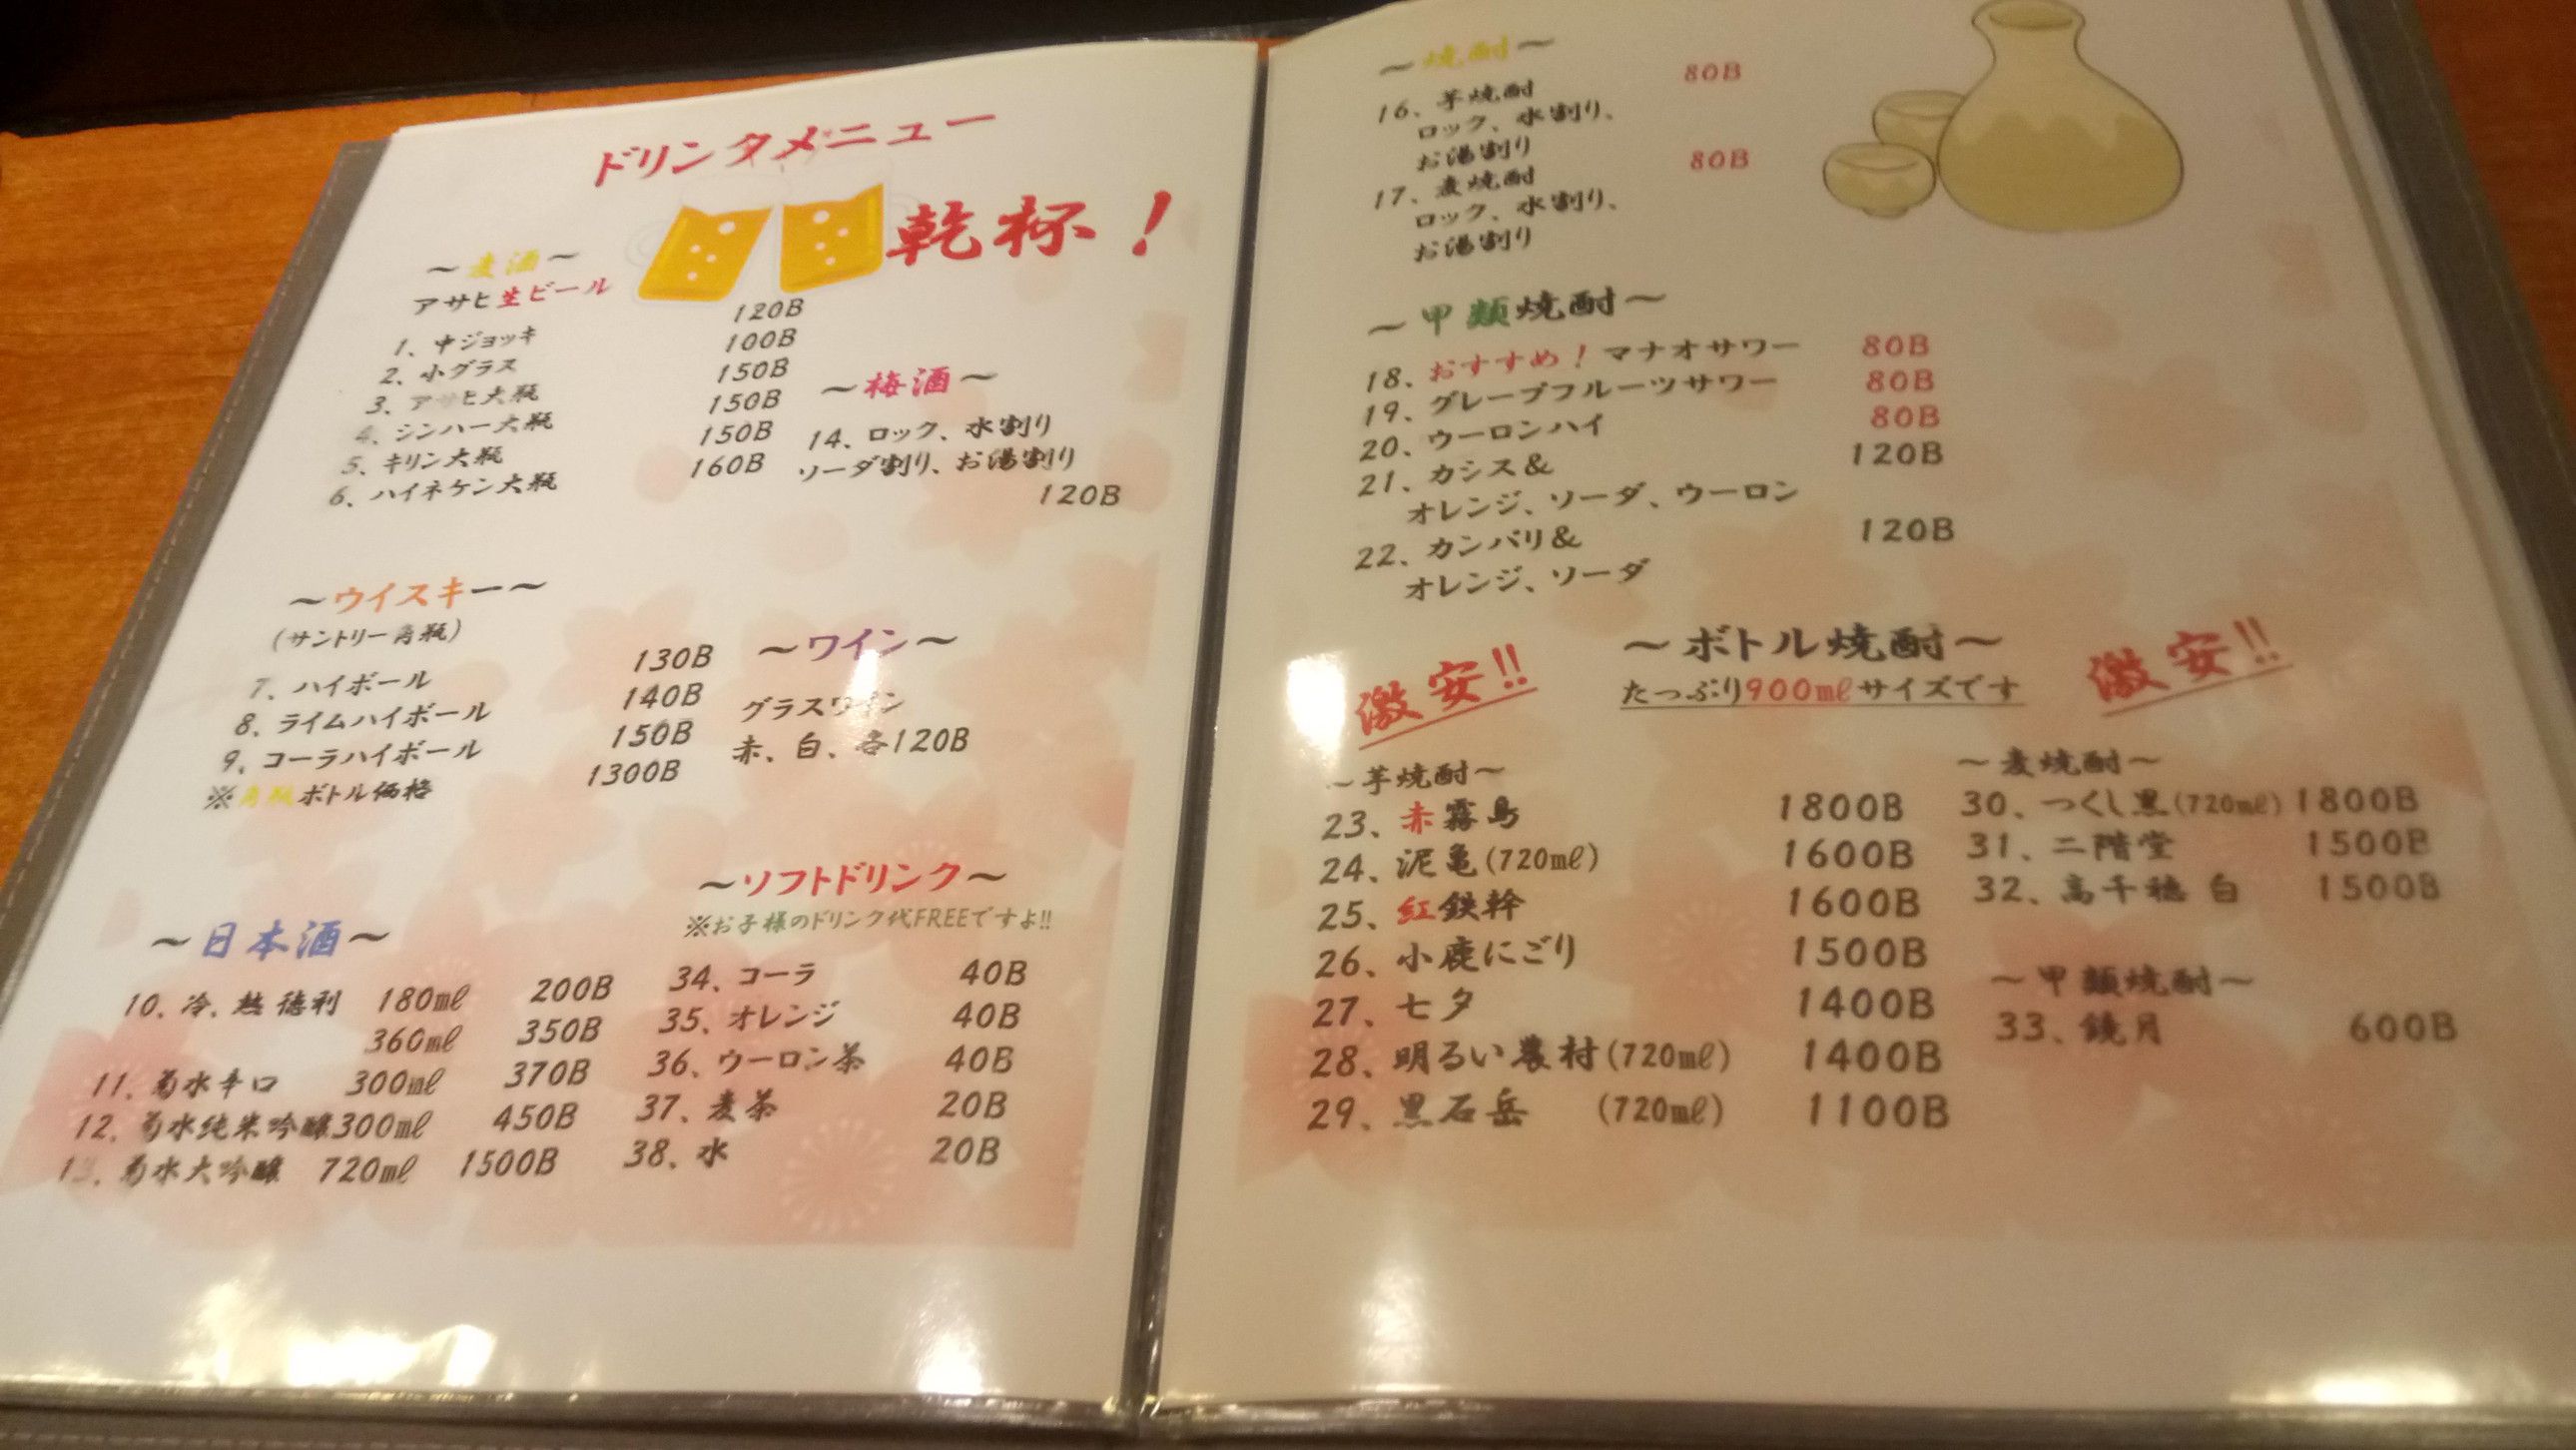 ドリンクメニュー
乾杯！
～麦酒～
アサヒ生ビール
1、中ジョッキ 120B
2、小グラス 100B
3、アサヒ大瓶 150B
4、シンハー大瓶 150B
5、キリン大瓶 150B
6、ハイネケン大瓶 160B
～梅酒～
14、ロック、水割り
ソーダ割り、お湯割り
120B
～ウイスキー～
(サントリー角瓶)
7、ハイボール 130B
8、ライムハイボール 140B
9、コーラハイボール 150B
※角瓶ボトル価格 1300B
～ワイン～
グラスワイン
赤、白、各120B
～日本酒～
10、冷、熱徳利 180㎖ 200B
360㎖ 350B
11、菊水辛口 300㎖ 370B
12、菊水純米吟醸300㎖ 450B
13、菊水大吟醸 720㎖ 1500B
～ソフトドリンク～
※お子様のドリンク代FREEですよ!!
34、コーラ 40B
35、オレンジ 40B
36、ウーロン茶 40B
37、麦茶 20B
38、水 20B
～焼酎～
16、芋焼酎 80B
ロック、水割り、
お湯割り
17、麦焼酎 80B
ロック、水割り、
お湯割り
～甲類焼酎～
18、おすすめ！マナオサワー 80B
19、グレープフルーツサワー 80B
20、ウーロンハイ 80B
21、カシス& 120B
オレンジ、ソーダ、ウーロン
22、カンパリ& 120B
オレンジ、ソーダ
激安!!
～ボトル焼酎～
たっぷり900㎖サイズです
激安!!
～芋焼酎～
23、赤霧島 1800B
24、泥亀(720㎖) 1600B
25、紅鉄幹 1600B
26、小鹿にごり 1500B
27、七夕 1400B
28、明るい農村(720㎖) 1400B
29、黒石岳 (720㎖) 1100B
～麦焼酎～
30、つくし黒(720㎖) 1800B
31、二階堂 1500B
32、高千穂 白 1500B
～甲類焼酎～
33、鏡月 600B